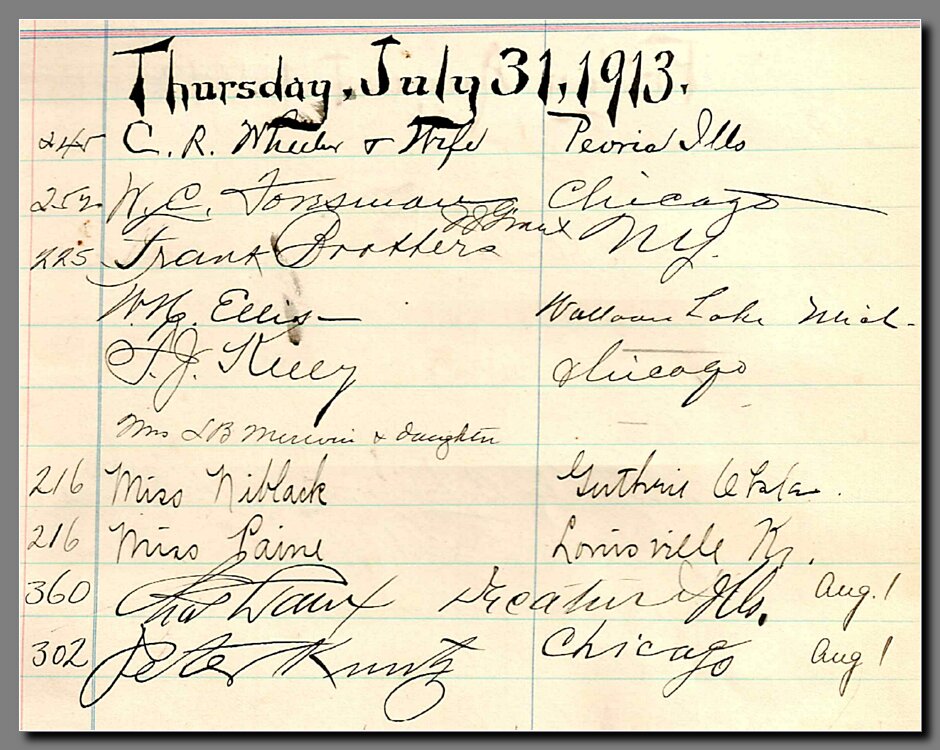 Thursday, July 31, 1913.
245 C. R. Wheeler & Wife Peoria Ills
252 W. C. Forsman Chicago
225 Frank Brothers NY.
W. H. Ellis Walloon Lake Mich.
F. J. Kelly Chicago
Mrs & daughter
216 Miss Niblack Guthrie Okla.
216 Miss Paine Louisville Ky.
360 Chas Decatur Ills. Aug. 1
302 Peter Kuntz Chicago Aug 1